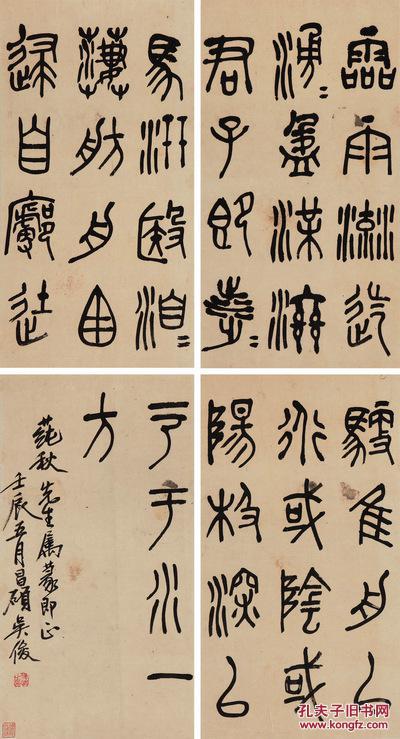 霝雨流迄
湧=盈渫濟
君子即涉=
馬汧殹洎=
萋舫舟囪
逮自廓徒
馭隹舟以
衍或陰或
陽极深以
于水一
方
蒓秋先生屬篆即正
壬辰五月昌碩吳俊
孔夫子旧书网